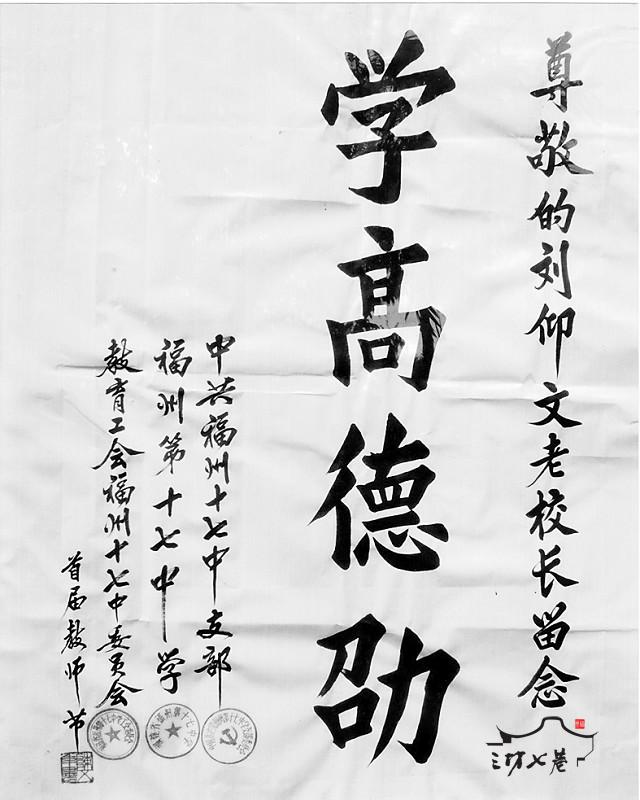 尊敬的刘仰文老校长留念
学高德劭
中共福州十七中支部
福州第十七中学
教育工会福州十七中委员会
首届教师节
三坊七巷